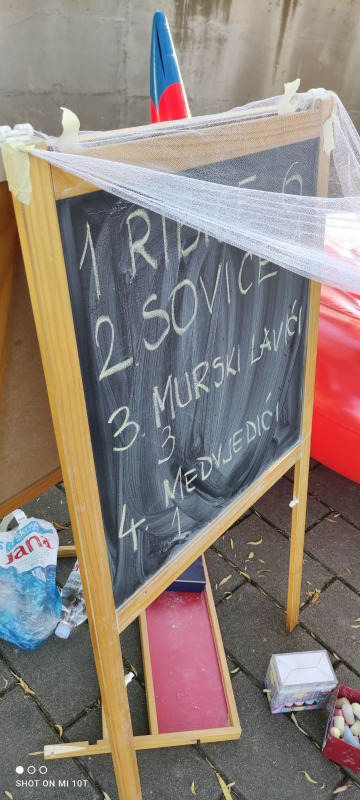 1 RIBICE 6
2. SOVICE
3. MURSKI LAVIĆI
3
4. MEDVJEDIĆI
1
Jana
SHOT ON MI 10T